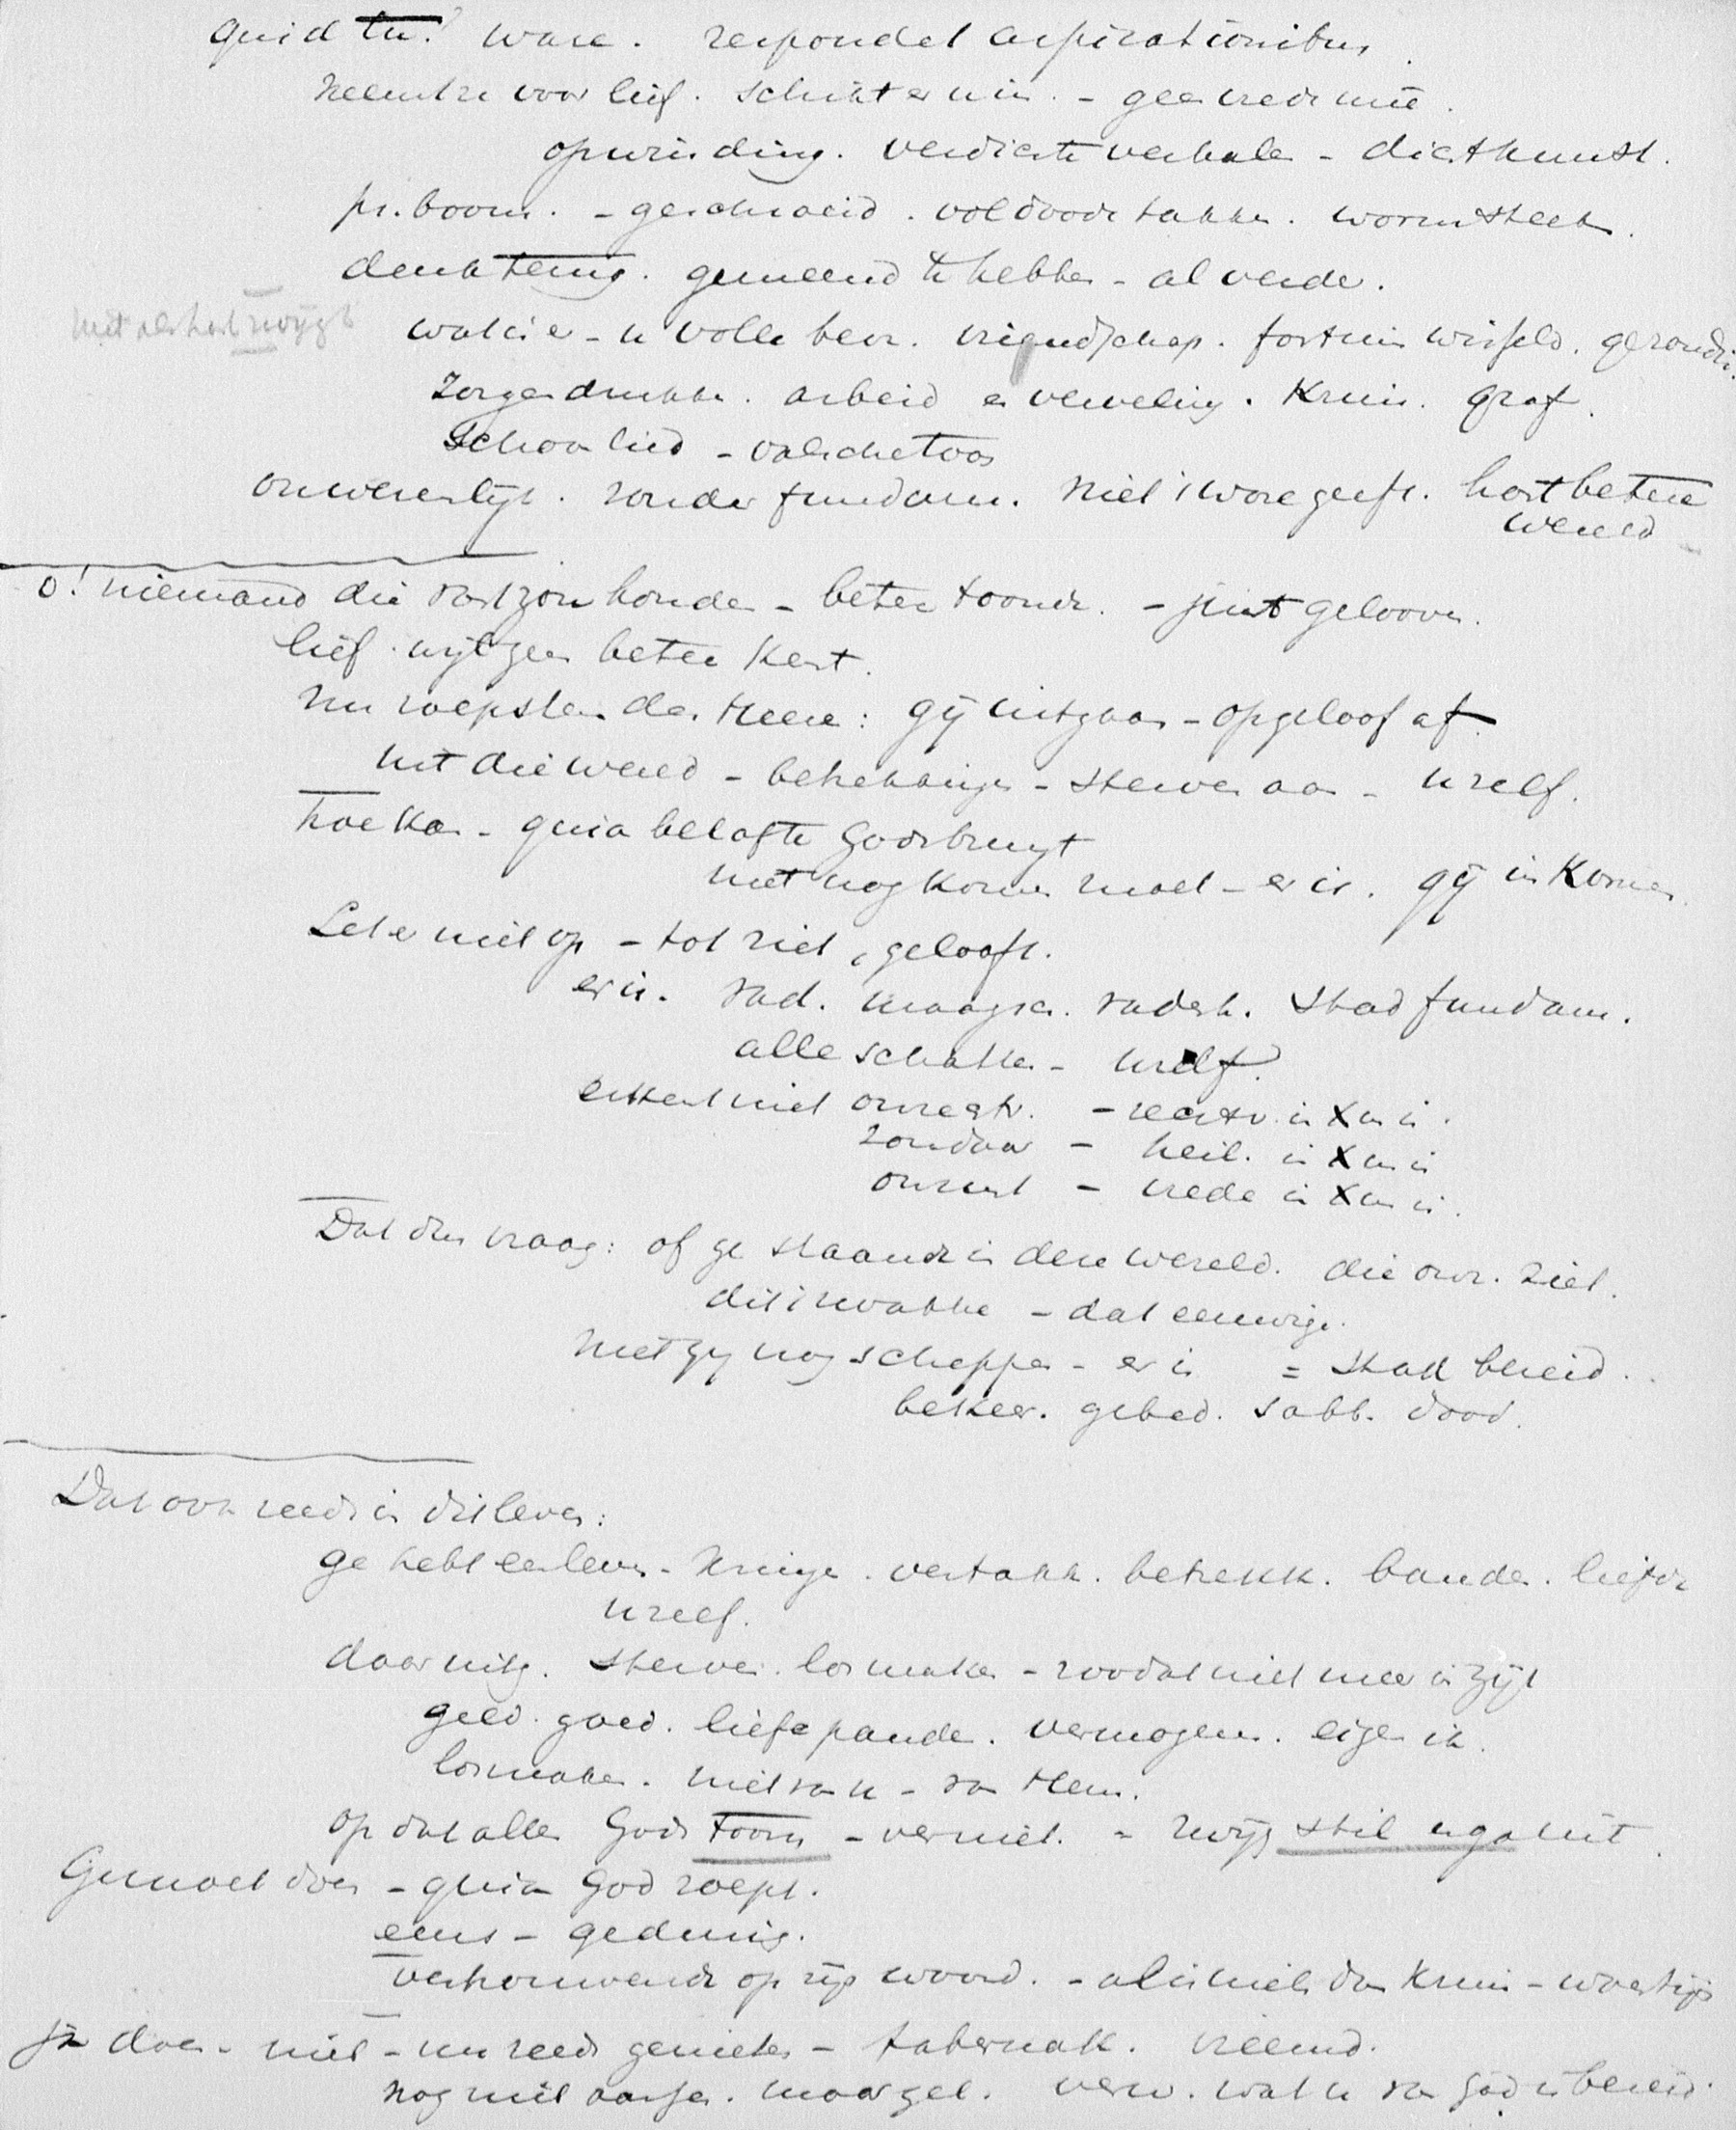 quid tu? ware. respondet aspirationibus
neemt ze voor lief. schikt er u in. - geen vrede mee.
opwinding. verdichte verhalen - dichtkunst.
denk temig. gemeend te hebben - al verder.
wat is er - u volle bevr. vriendschap. fortuin wisseld. gezondh.
zorgen drukken. arbeid en verveling. Kruis. graf.
schoon lied - valsche toon
onwezenlijk. zonder fundam. niet 't ware geeft. hart betere
wereld
o! niemand die vast zou houden - beter toonde. - juist gelooven.
lief. wijl geen beter kent.
nu roepstem des Heere: gij uitgaan - op geloof af.
uit die wereld - betrekkingen - sterven aan - uzelf.
hoe kan - quia belofte Gods brengt
niet nog komen moet - er is. gij in komen.
Let er niet op - tot ziet, gelooft.
er is. vad. maagsch. vaderh. stad fundam.
alle schatten - uzelf.
erkent niet onrechtv. - rechtv. in X en is.
zondaar - heil. in X en is
onrust - vrede in X en is.
Dat dus vraag: of ge staande in deze wereld. die onz. ziet.
dit 't zwakke - dat eeuwige.
niet gij nog scheppen - er is = stad bereid.
bekeer. gebed. sabb. dood.
Dat ook reeds in dit leven:
ge hebt een leven - kringen. vertakk. betrekk. banden. liefde
uzelf.
daar uitg. sterven. losmaken - zoodat niet meer in zijt
geld. goed. liefe panden. vermogen. eigen ik.
losmaken. niet van u - van Hem.
op dat alles Gods toorn - verniet. - zwijg stil en ga uit.
Ge moet doen - quia God roept.
eens - gedurig.
vertrouwende op zijn woord. - al is niets dan kruis - woestijn
Zoo doen - niet - nu reeds genieten - tabernak. vreemd.
nog niet aansch. maar gel. verw. wat u van God is bereid.